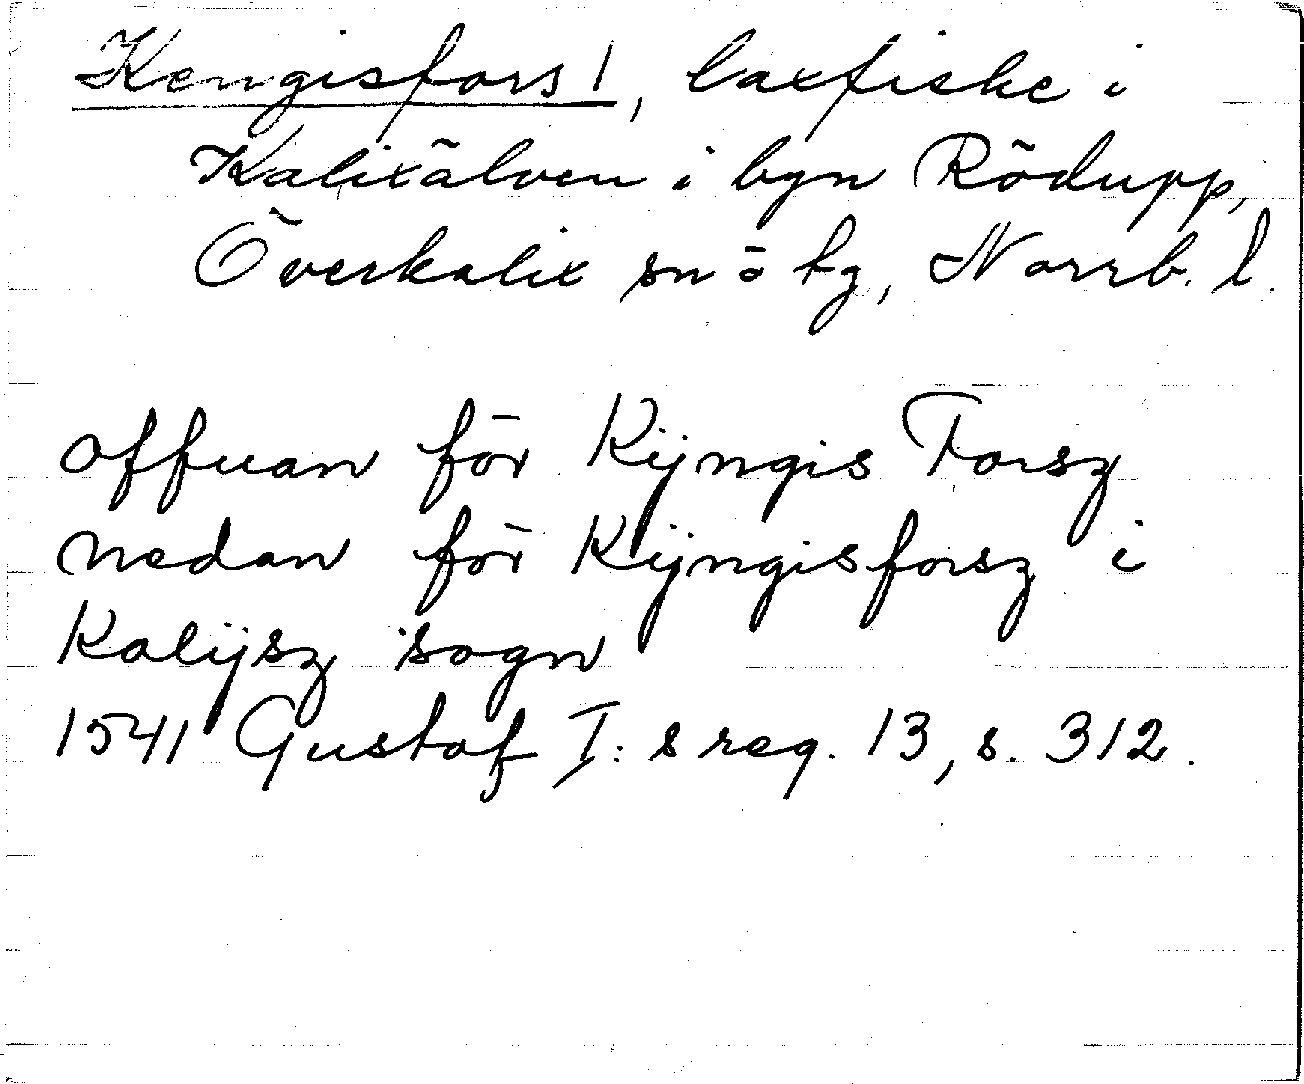 Kengisfors!, laxfiske i
Kalixälven i byn Rödupp,
Överkalix sn o tg, Norrb. l.
offuan för Kijngis Forsz
nedan för Kijngisforsz i
Kalijsz sogn
1541 Gustaf I:s reg. 13, s. 312.